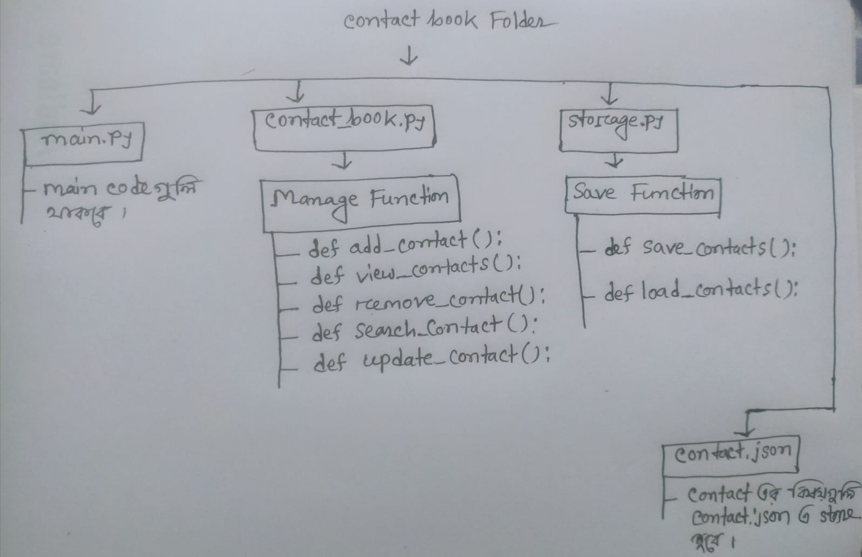 contact book Folder
main.py
main code গুলি
থাকবে।
contact_book.py
Manage Function
def add_contact():
def view_contacts():
def remove_contact():
def search_contact():
def update_contact():
storage.py
Save Function
def save_contacts():
def load_contacts():
contact.json
contact এর বিষয়গুলি
contact.json এ store
হবে।